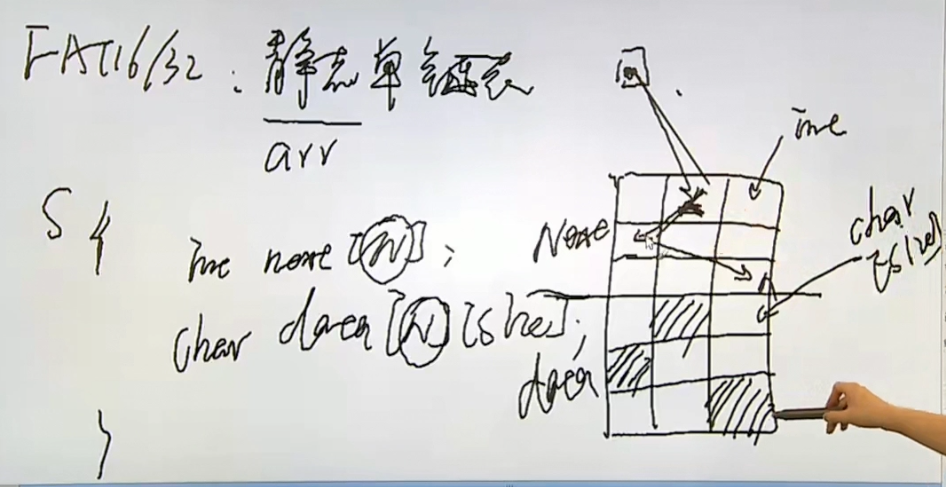 FAT16/32: 静态单链表
arr
S {
int next [N];
char data [N] [size];
}
int
Next
char [size]
data